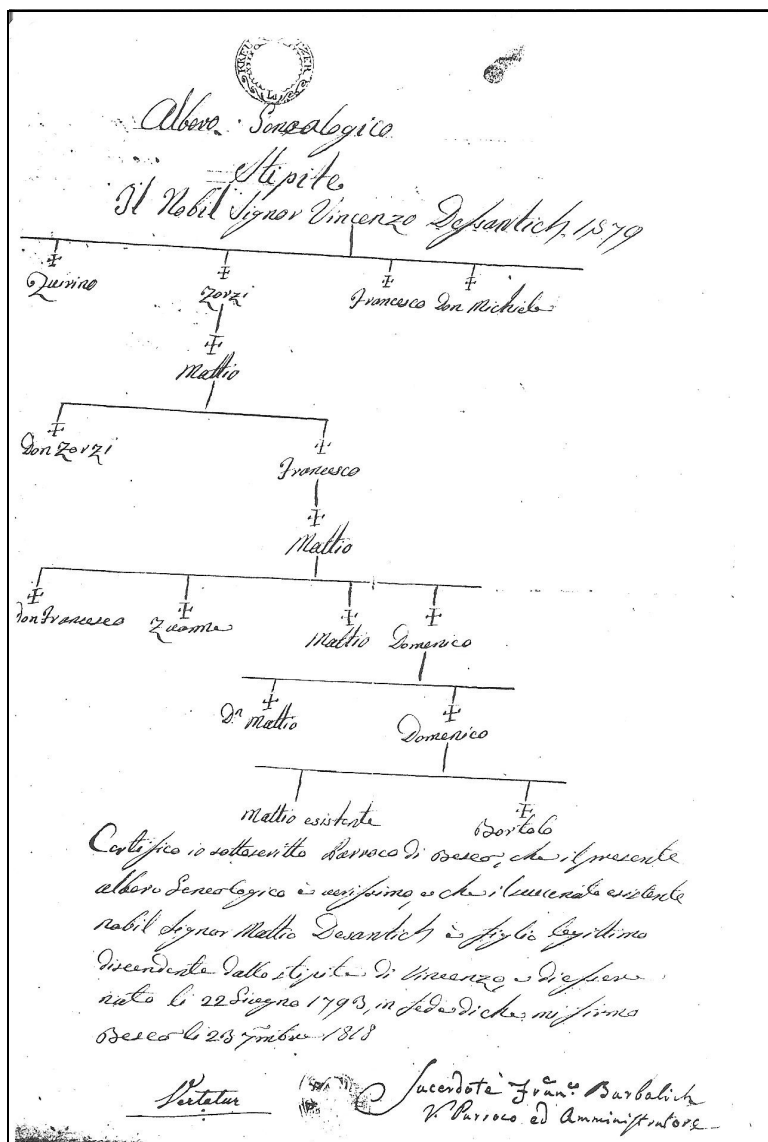 KREUZER
Albero Genealogico
Stipite
Il Nobil Signor Vincenzo Dessantich 1579
Quirino Zorzi Francesco Don Michiele
Mattio
Don Zorzi Francesco
Mattio
Don Francesco Zuanne Mattio Domenico
Dn Mattio Domenico
Mattio esistente Bortolo
Certifico io sottoscritto Parroco di Besca, che il presente
albero Geneologico è verissimo e che il succenato esistente
nobil Signor Mattio Desantich è figlio legittimo
discendente dallo stipite di Vincenzo, e di essere
nato li 22 Giugno 1793, in fede di che mi firmo
Besca li 23 7mbre 1818
Vertatur
Sacerdote Franco Barbalich
V. Parroco ed Amministratore